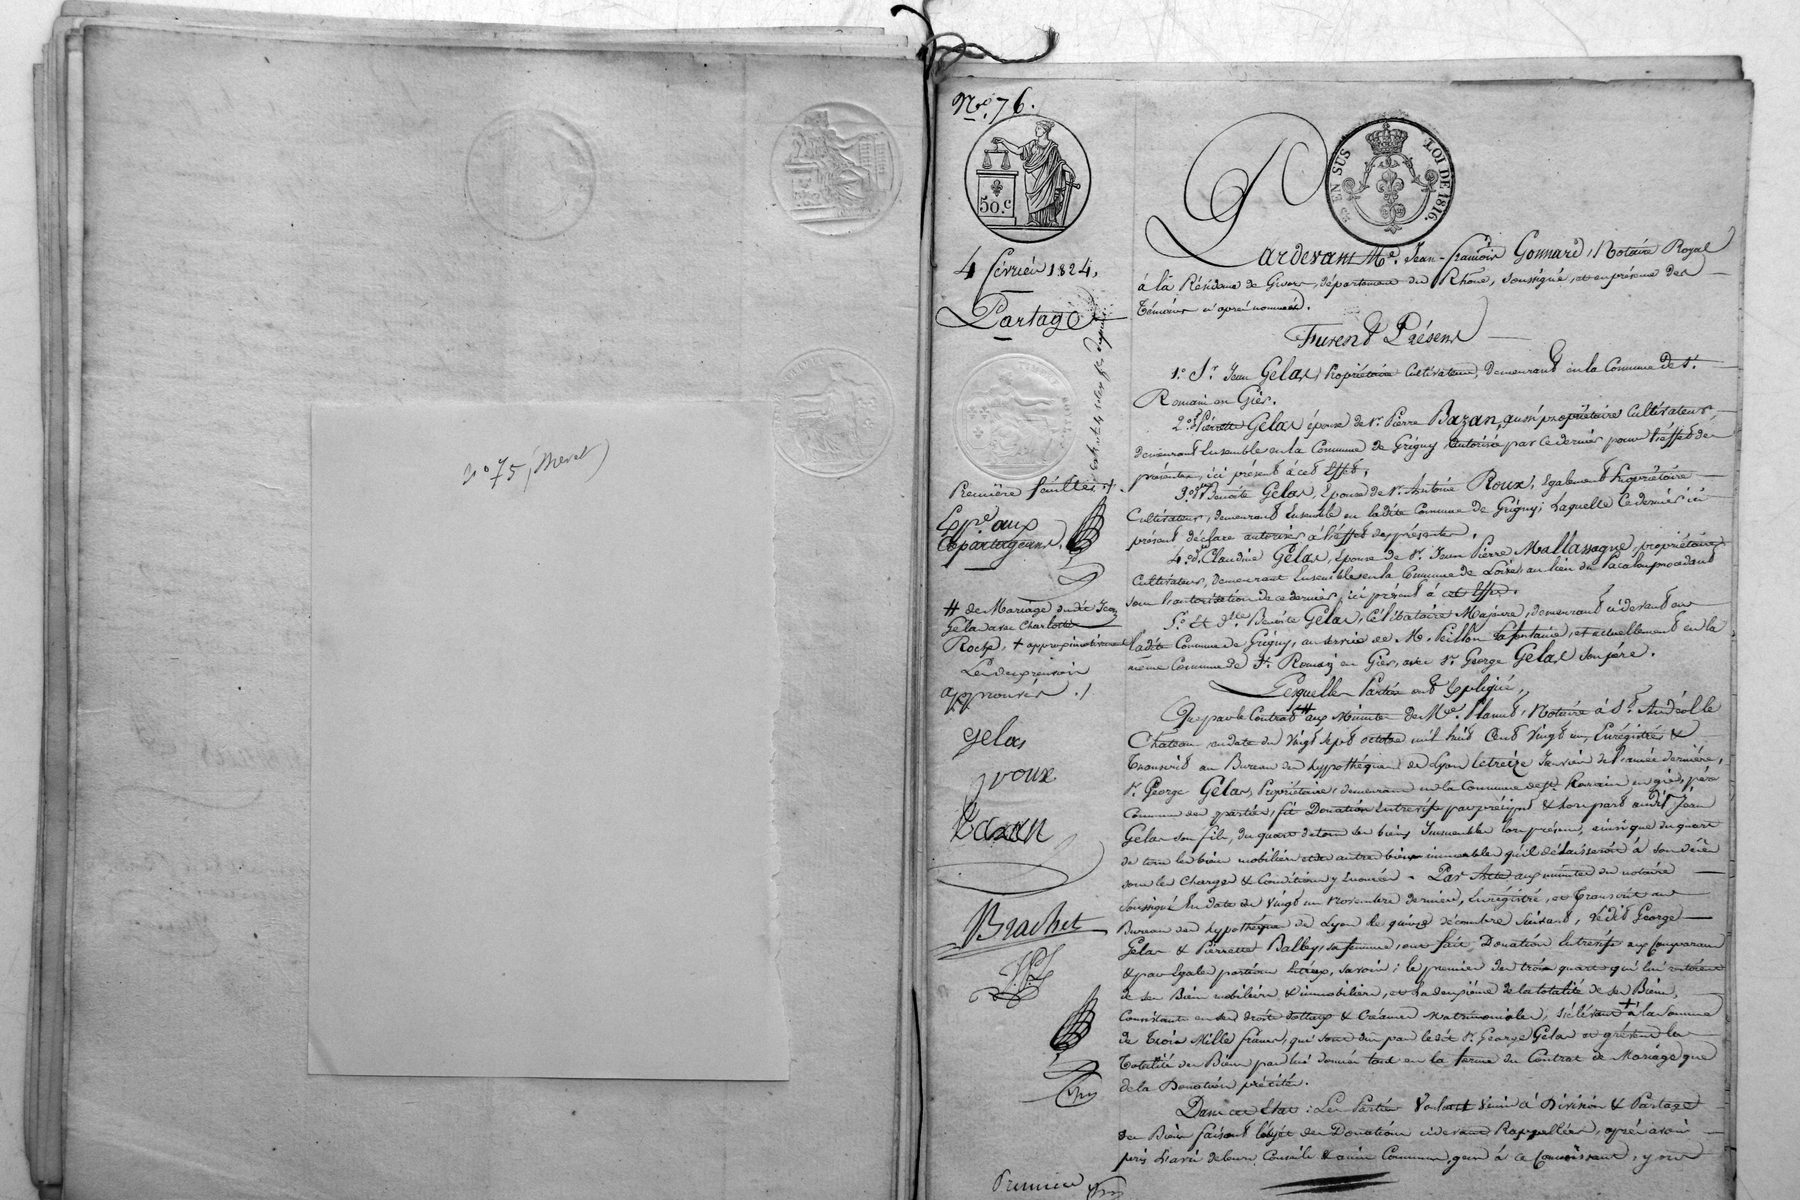 n° 75, (
N.° 76.
50.c
EN SUS LOI DE 1816.
4 février 1824.
Partage
Première feuille ./.
Exp.e aux
Copartageans.
# de Mariage dudit Jean
Gelas avec Charlotte
Roche, + approximativement
approuvés ./
gelas
roux
Bazan
Brachet
Première
Pardevant Me. Jean-françois Gonnard, Notaire Royal
à la Résidence de Givors, département du Rhône, soussigné, et en présence des
témoins ci après nommés.
Furent Présens
1.° Sr. Jean Gelas, propriétaire cultivateur, demeurant en la Commune de St.
Romain en Gier.
2.° Pierrette Gelas épouse de Sr. Pierre Bazan, aussi propriétaires Cultivateurs,
demeurant Ensemble en la Commune de Grigny autorisée par ce dernier pour l'effet des
présentes, ici présent à cet effet.
3.° Benoite Gelas, Epouse de Sr. Antoine Roux, également Propriétaire
Cultivateurs, demeurant Ensemble en ladite Commune de Grigny; Laquelle ce dernier ici
présent déclare autoriser à l'effet des présentes.
4.° Claudine Gelas, Epouse de Sr. Jean Pierre Mallassagne, propriétaires
Cultivateurs, demeurant Ensemble en la Commune de Loire, au lieu du procédant
sous l'autorisation de ce dernier, ici présent à cet effet.
5.° Et dlle Benoite Gelas, Célibataire Majeure, demeurant ci devant en
ladite Commune de Grigny, au service de M. Peillon Lafontaine, et actuellement en la
même Commune de St. Romain en Gier, avec Sr. George Gelas son père.
Lesquelles Parties ont Expliqué,
Que par le Contrat # aux Minutes de Me. Plant, Notaire à St. Andéol le
Chateau en date du Vingt Sept octobre mil huit Cent Vingt un, Enrégistré &
Transcrit au Bureau des hypothèques de Lyon le treize Janvier de l'année dernière,
Sr. George Gelas, Propriétaire, demeurant en la Commune de St. Romain en gier, père
Commun des parties, fit Donation Entrevifs par préciput & hors part audit Jean
Gelas son fils, du quart de tous ses biens Immeubles lors présens, ainsi que du quart
de tous les biens mobiliers et de autres biens immeubles qu'il délaisseroit à son décès
sous les Charges & Conditions y énoncées. Par Acte aux minutes du notaire
soussigné En date du Vingt un Novembre dernier, Enrégistré, et Transcrit au
Bureau des hypothèques de Lyon le quinze décembre Suivant, ledit George
Gelas & Pierrette Balley, sa femme, ont fait Donation Entrevifs aux Comparans
& par Egales portions Entreux, savoir; le premier des trois quarts qui lui restoient
de ses Biens mobiliers & immobiliers, et la deuxième de la totalité de ses Biens,
Consistants en ses droits dotaux & Créances matrimoniales, s'élévant + à la somme
de Trois Mille francs, qui sont dus par ledit Sr. George Gelas et grévent la
Totalité des Biens par lui donnés tant en la forme du Contrat de Mariage que
de la Donation précitée.
Dans cet Etat: Les Parties Voulant Venir à Division & Partage
des Biens faisant l'objet des Donations cidevant Rappellées, après avoir
pris l'avis de leurs Conseils & amis Communs, gens à ce Connoissant, y ont